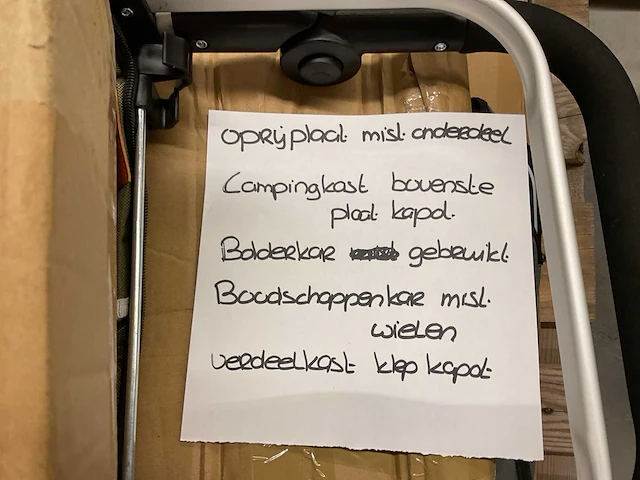 oprijplaat mist onderdeel
Campingkast bovenste
plaat kapot.
Bolderkar gebruikt.
Boodschappenkar mist.
wielen
verdeelkast klep kapot.